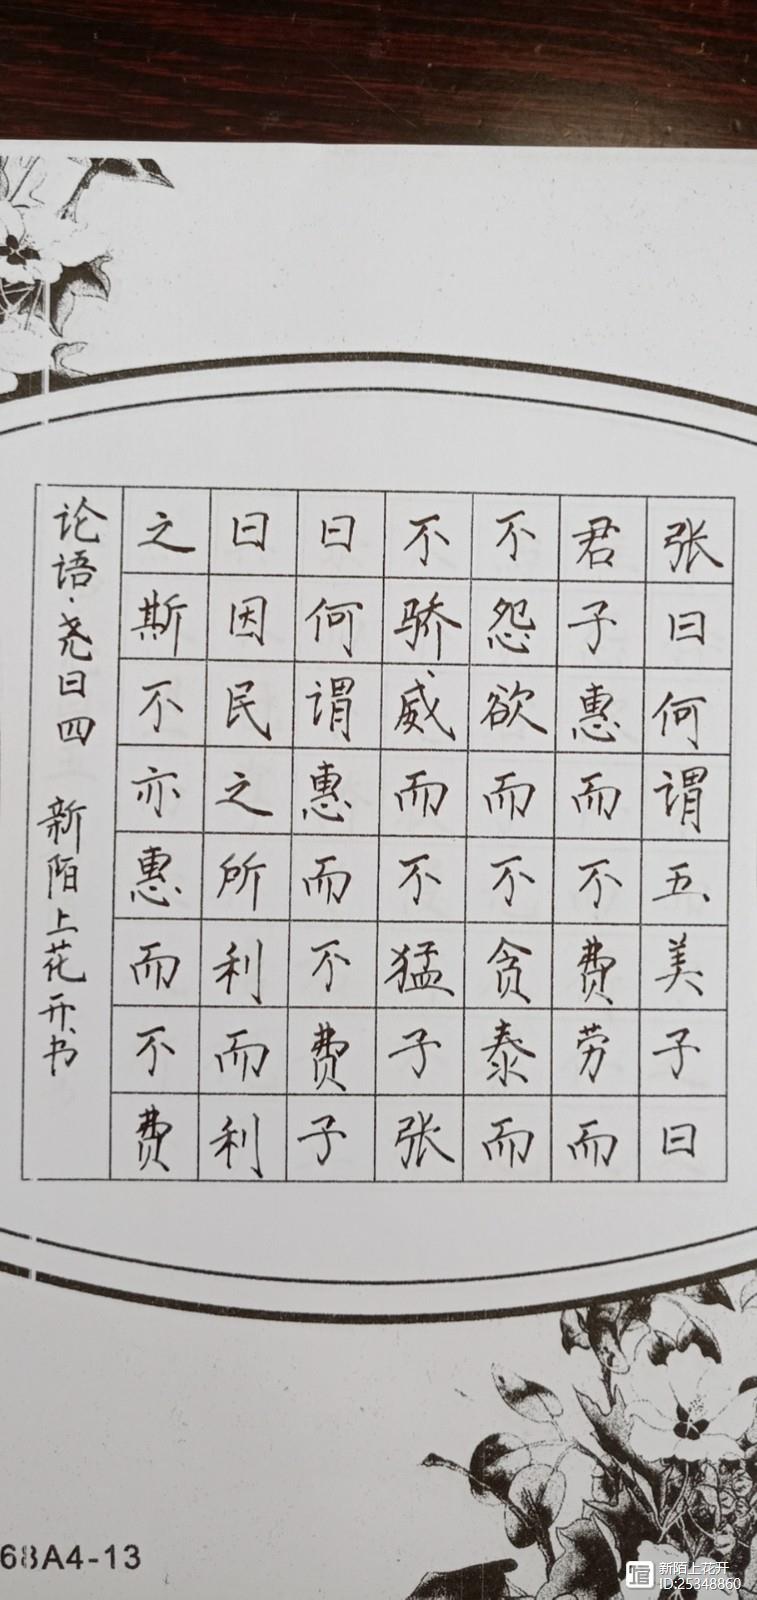 张曰何谓五美子曰
君子惠而不费劳而
不怨欲而不贪泰而
不骄威而不猛子张
曰何谓惠而不费子
曰因民之所利而利
之斯不亦惠而不费
论语·尧曰四 新陌上花开书
68A4-13
新陌上花开
ID:25348860